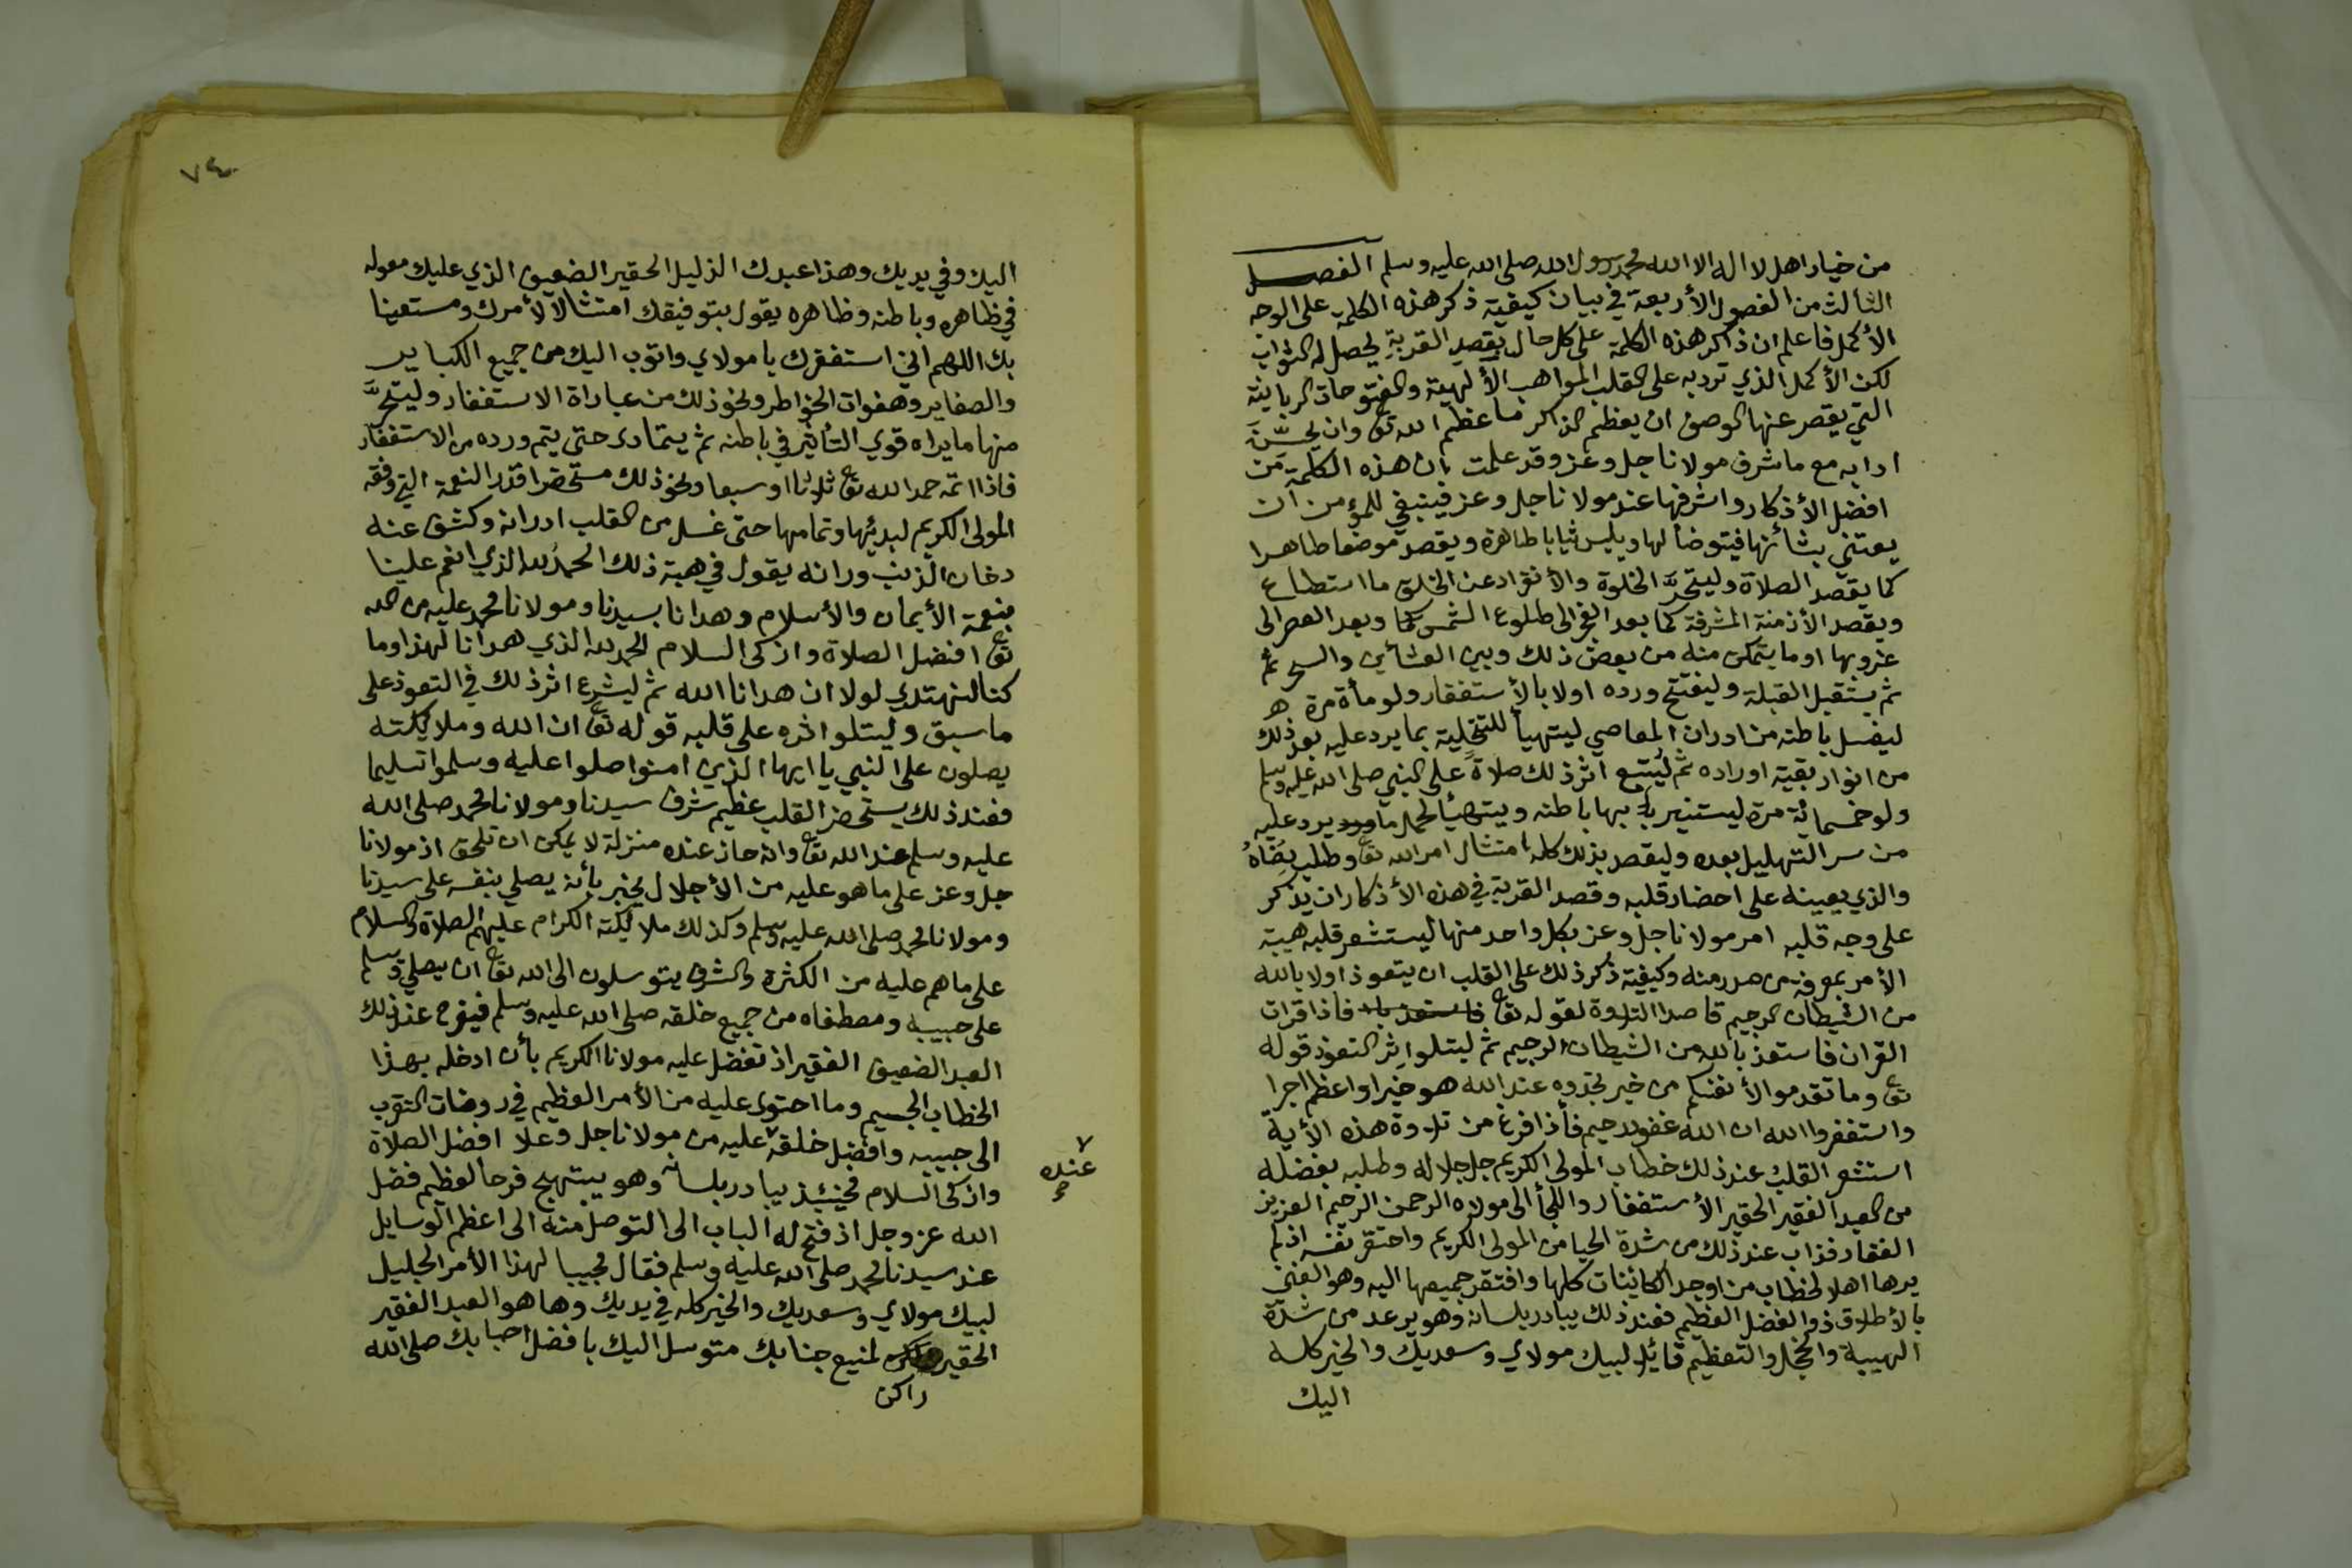 من خيار اهل لا اله الا الله محمد رسول الله صلى الله عليه وسلم الفصل
الثالث من الفصول الأربعة في بيان كيفية ذكر هذه الكلمة على الوجه
الأكمل فاعلم ان ذاكر هذه الكلمة على كل حال بقصد القربة يحصل له الثواب
لكن الأكمل الذي ترد به على القلب المواهب الألهية والفتوحات الربانية
التي يقصر عنها الوصف ان يعظم الذاكر ما عظم الله تع وان يحسّن
ادابه مع ما شرف مولانا جل وعز وقد علمت بان هذه الكلمة من
افضل الأذكار واشرفها عند مولانا جل وعز فينبغي للمؤمن ان
يعتني بشأنها فيتوضأ لها ويلبس ثيابا طاهرة ويقصد موضعا طاهرا
كما يقصد الصلاة وليتحرّ الخلوة والأنفراد عن الخلق ما استطاع
ويقصد الأزمنة المشرفة كما بعد الفجر الى طلوع الشمس كما وبعد العصر الى
غروبها او ما يتمكن منه من بعض ذلك وبين العشائين والسحر ثم
ثم يستقبل القبلة وليفتتح ورده اولا بالأستغفار ولو مأة مرة
ليغسل باطنه من ادران المعاصي ليتهيأ للتحلية بما يرد عليه بعد ذلك
من انوار بقية اوراده ثم ليتبع اثر ذلك صلاة على النبي صلى الله عليه وسلم
ولو خمسمائة مرة ليستنير بها باطنه ويتهيأ لحمل ما يرد عليه
من سر التهليل بعده وليقصد بذلك كله امتثال امر الله تع وطلب رضاه
والذي يعينه على احضار قلبه وقصد القربة في هذه الأذكار ان يذكر
على وجه قلبه امر مولانا جل وعز بكل واحد منها ليستشعر قلبه هيبة
الأمر بمعرفة من صدر منه وكيفية ذكر ذلك على القلب ان يتعوذ اولا بالله
من الشيطان الرجيم قاصدا التلاوة لقوله تع فاذا قرات
القران فاستعذ بالله من الشيطان الرجيم ثم ليتلوا اثر التعوذ قوله
تع وما تقدموا لأنفسكم من خير تجدوه عند الله هو خيرا واعظم اجرا
واستغفروا الله ان الله غفور رحيم فأذا فرغ من تلاوة هذه الأية
استشعر القلب عند ذلك خطاب المولى الكريم جل جلاله وطلبه بفضله
من العبد الفقير الحقير الأستغفار واللجأ الى مولاه الرحمن الرحيم العزيز
الغفار فذاب عند ذلك من شدة الحيا من المولى الكريم واحتقر نفسه اذ لم
يرها اهلا لخطاب من اوجد الكائنات كلها وافتقر جميعها اليه وهو الغني
بالأطلاق ذو الفضل العظيم فعند ذلك يبادر بلسانه وهو يرعد من شدة
الهيبة والخجل والتعظيم قائلا لبيك مولاي وسعديك والخير كله
اليك
٧٤
اليك وفي يديك وهذا عبدك الذليل الحقير الضعيف الذي عليك معوله
في ظاهره وباطنه وظاهره يقول بتوفيقك امتثالا لأمرك ومستعينا
بك اللهم اني استغفرك يا مولاي واتوب اليك من جميع الكباير
والصغاير وهفوات الخواطر ونحو ذلك من عباراة الاستغفار وليتحرّ
منها ما يراه قوي التأثير في باطنه ثم يتمادى حتى يتم ورده من الاستغفار
فاذا اتمه حمد الله تع ثلاثا او سبعا ونحو ذلك مستحضرا قدر النعمة التي وفقه
المولى الكريم لبدئها وتمامها حتى غسل من القلب ادرانه وكشف عنه
دخان الذنب ورانه يقول في هيبة ذلك الحمد لله الذي انعم علينا
بنعمة الأيمان والأسلام وهدانا بسيدنا ومولانا محمد عليه من الله
تع افضل الصلاة وازكى السلام الحمد لله الذي هدانا لهذا وما
كنا لنهتدي لولا ان هدانا الله ثم ليشرع اثر ذلك في التعوذ على
ما سبق وليتلوا اثره على قلبه قوله تع ان الله وملايكته
يصلون على النبي يا ايها الذين امنوا صلوا عليه وسلموا تسليما
فعند ذلك يستحضر القلب عظيم شرف سيدنا ومولانا محمد صلى الله
عليه وسلم عند الله تع وانه حاز عنده منزلة لا يمكن ان تلحق اذ مولانا
جل وعز على ما هو عليه من الأجلال يخبر بأنه يصلي بنفسه على سيدنا
ومولانا محمد صلى الله عليه وسلم وكذلك ملائكته الكرام عليهم الصلاة والسلام
على ما هم عليه من الكثرة والشرف يتوسلون الى الله تع ان يصلي وسلم
على حبيبه ومصطفاه من جميع خلقه صلى الله عليه وسلم فيفرح عند ذلك
العبد الضعيف الفقير اذ تفضل عليه مولانا الكريم بأن ادخله بهذا
الخطاب الجسيم وما احتوى عليه من الأمر العظيم في روضات التقرب
الى حبيبه وافضل خلقه عليه من مولانا جل وعلا افضل الصلاة
وازكى السلام فحينئذ يبادر بلسانه وهو يبتهج فرحا لعظيم فضل
الله عز وجل اذ فتح له الباب الى التوصل منه الى اعظم الوسايل
عند سيدنا محمد صلى الله عليه وسلم فقال مجيبا لهذا الأمر الجليل
لبيك مولاي وسعديك والخير كله في يديك وها هو العبد الفقير
الحقير لمنيع جنابك متوسل اليك بافضل احبابك صلى الله
راكن
٧
عنده